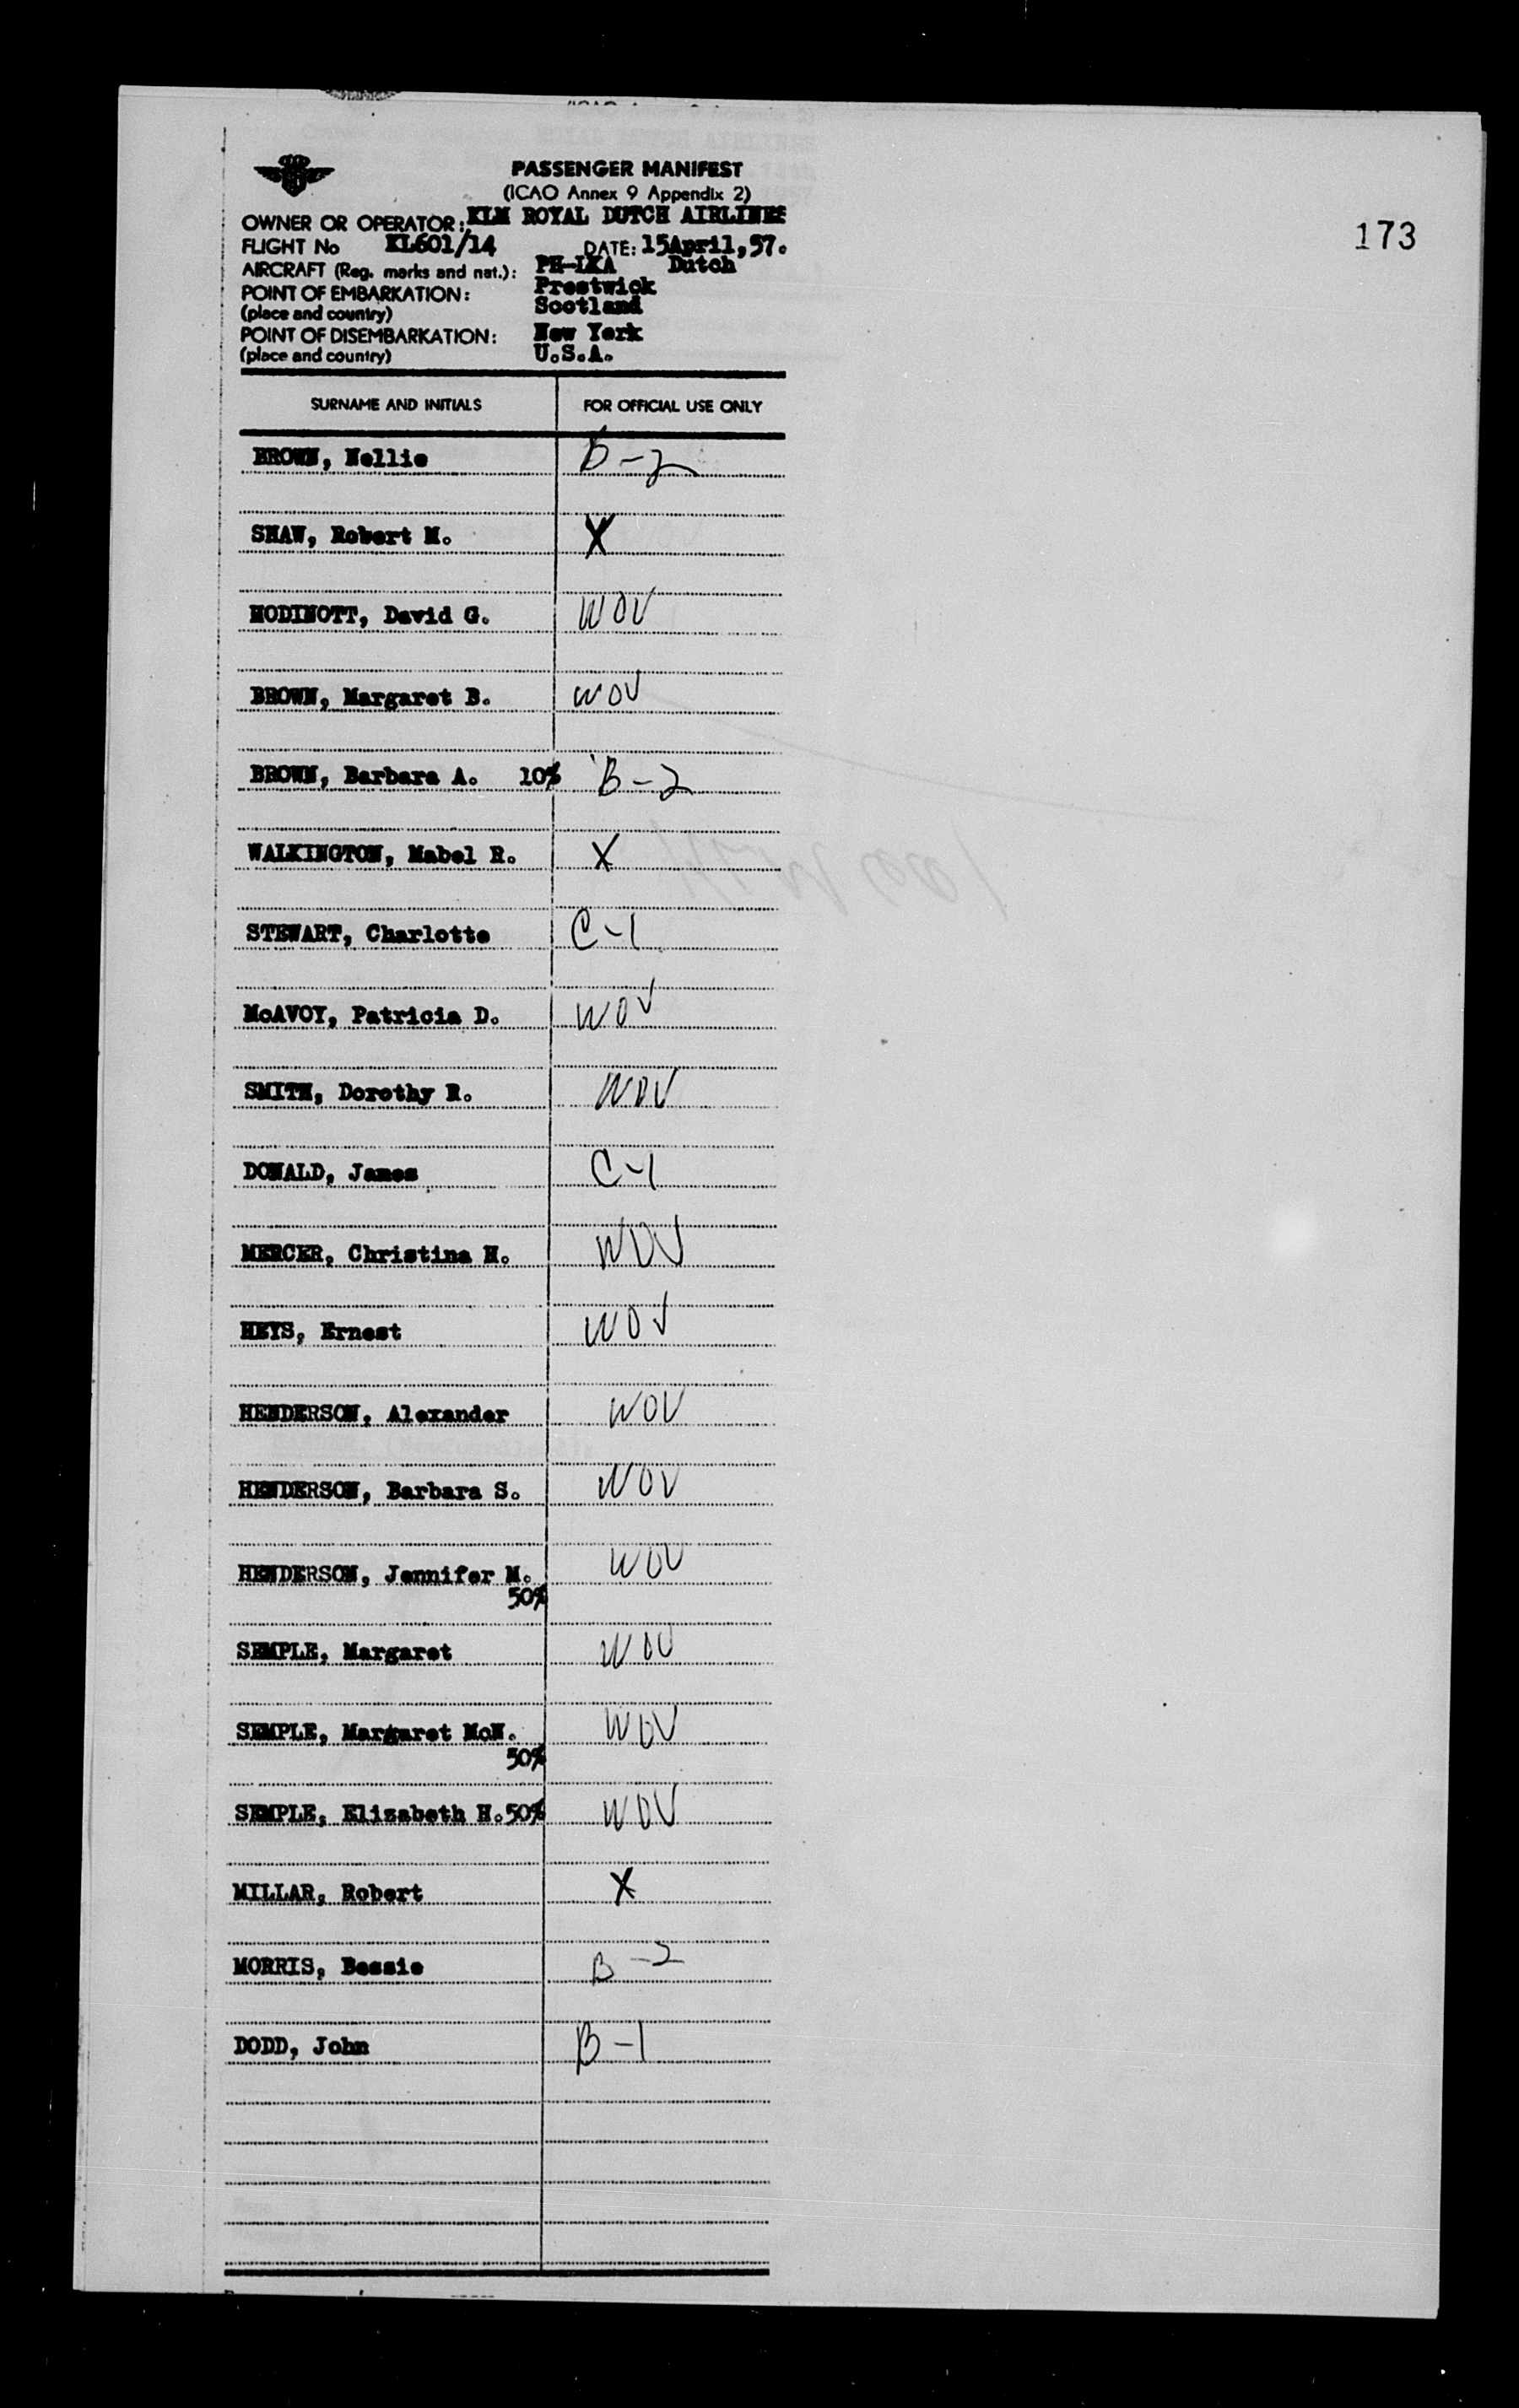 PASSENGER MANIFEST
(ICAO Annex 9 Appendix 2)
OWNER OR OPERATOR: KLM ROYAL DUTCH AIRLINES
173
FLIGHT No KL601/14 DATE: 15April,57.
AIRCRAFT (Reg. marks and nat.): PH-LKA Dutch
POINT OF EMBARKATION: Prestwick
(place and country) Scotland
POINT OF DISEMBARKATION: New York
(place and country) U.S.A.
SURNAME AND INITIALS FOR OFFICIAL USE ONLY
BROWN, Nellie B-2
SHAW, Robert M. X
HODINOTT, David G. WOV
BROWN, Margaret B. WOV
BROWN, Barbara A. 10% B-2
WALKINGTON, Mabel R. X
STEWART, Charlotte C-1
McAVOY, Patricia D. WOV
SMITH, Dorothy R. WOV
DONALD, James C-1
MERCER, Christina H. WOV
HEYS, Ernest WOV
HENDERSON, Alexander WOV
HENDERSON, Barbara S. WOV
HENDERSON, Jennifer M. WOV
50%
SEMPLE, Margaret WOV
SEMPLE, Margaret McN. WOV
50%
SEMPLE, Elizabeth H. 50% WOV
MILLAR, Robert X
MORRIS, Bessie B-2
DODD, John B-1